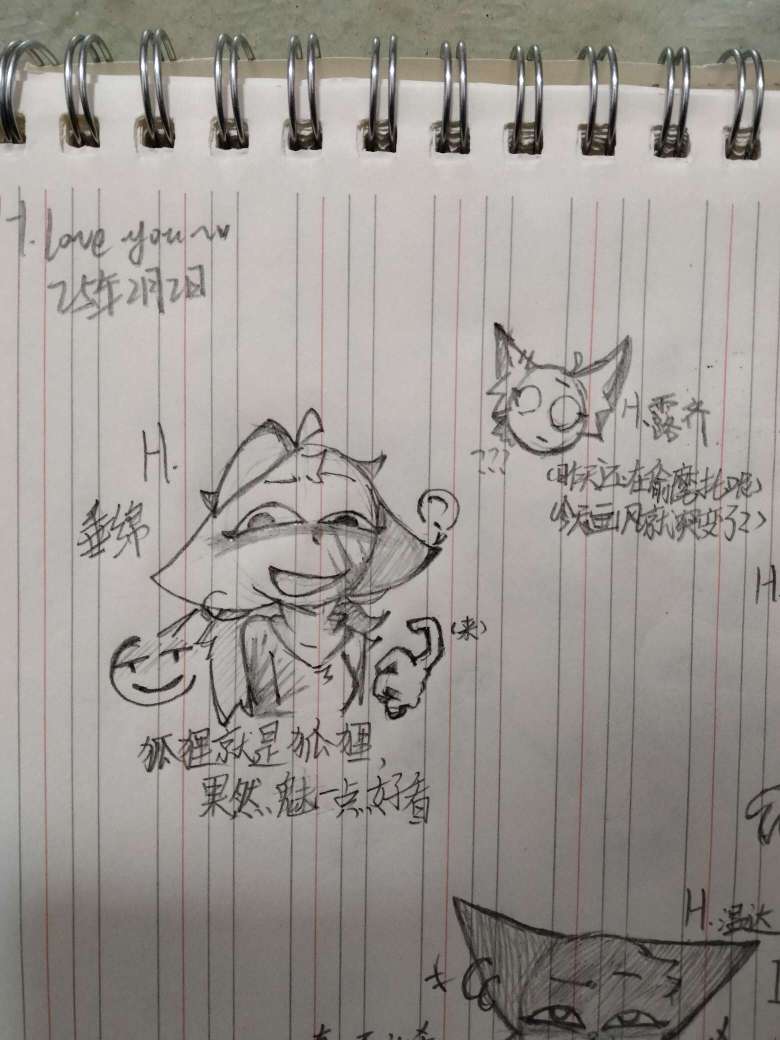 I. love you~
25年2月2日
H.露齐
???
(昨天还在偷摩托呢)
(今天画风就突变了?)
H.
垂绵
(来)
狐狸就是狐狸,
果然魅一点好看
H.
H.温达